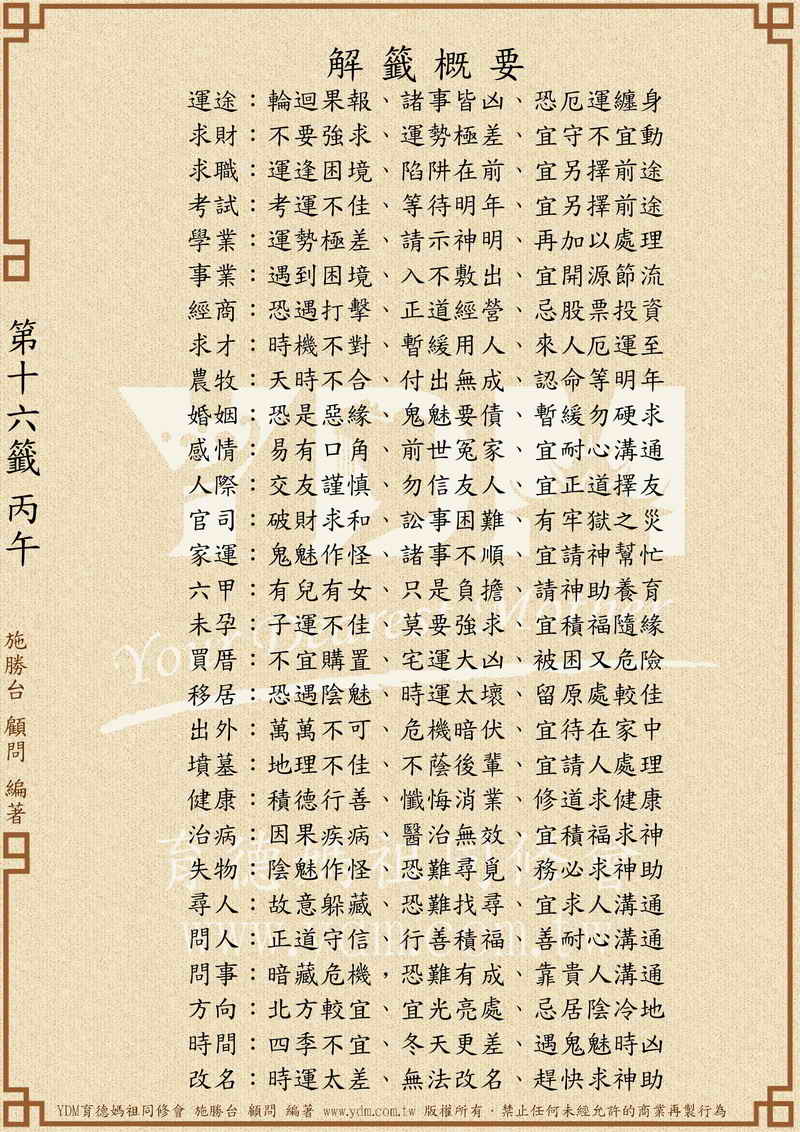 解籤概要
運途：輪迴果報、諸事皆凶、恐厄運纏身
求財：不要強求、運勢極差、宜守不宜動
求職：運逢困境、陷阱在前、宜另擇前途
考試：考運不佳、等待明年、宜另擇前途
學業：運勢極差、請示神明、再加以處理
事業：遇到困境、入不敷出、宜開源節流
經商：恐遇打擊、正道經營、忌股票投資
求才：時機不對、暫緩用人、來人厄運至
農牧：天時不合、付出無成、認命等明年
婚姻：恐是惡緣、鬼魅要債、暫緩勿硬求
感情：易有口角、前世冤家、宜耐心溝通
人際：交友謹慎、勿信友人、宜正道擇友
官司：破財求和、訟事困難、有牢獄之災
家運：鬼魅作怪、諸事不順、宜請神幫忙
六甲：有兒有女、只是負擔、請神助養育
未孕：子運不佳、莫要強求、宜積福隨緣
買厝：不宜購置、宅運大凶、被困又危險
移居：恐遇陰魅、時運太壞、留原處較佳
出外：萬萬不可、危機暗伏、宜待在家中
墳墓：地理不佳、不蔭後輩、宜請人處理
健康：積德行善、懺悔消業、修道求健康
治病：因果疾病、醫治無效、宜積福求神
失物：陰魅作怪、恐難尋覓、務必求神助
尋人：故意躲藏、恐難找尋、宜求人溝通
問人：正道守信、行善積福、善耐心溝通
問事：暗藏危機，恐難有成、靠貴人溝通
方向：北方較宜、宜光亮處、忌居陰冷地
時間：四季不宜、冬天更差、遇鬼魅時凶
改名：時運太差、無法改名、趕快求神助
第十六籤 丙午
施勝台 顧問 編著
YDM
Your Dearest Mother
育德媽祖同修會
www.ydm.com.tw
YDM育德媽祖同修會 施勝台 顧問 編著 www.ydm.com.tw 版權所有．禁止任何未經允許的商業再製行為